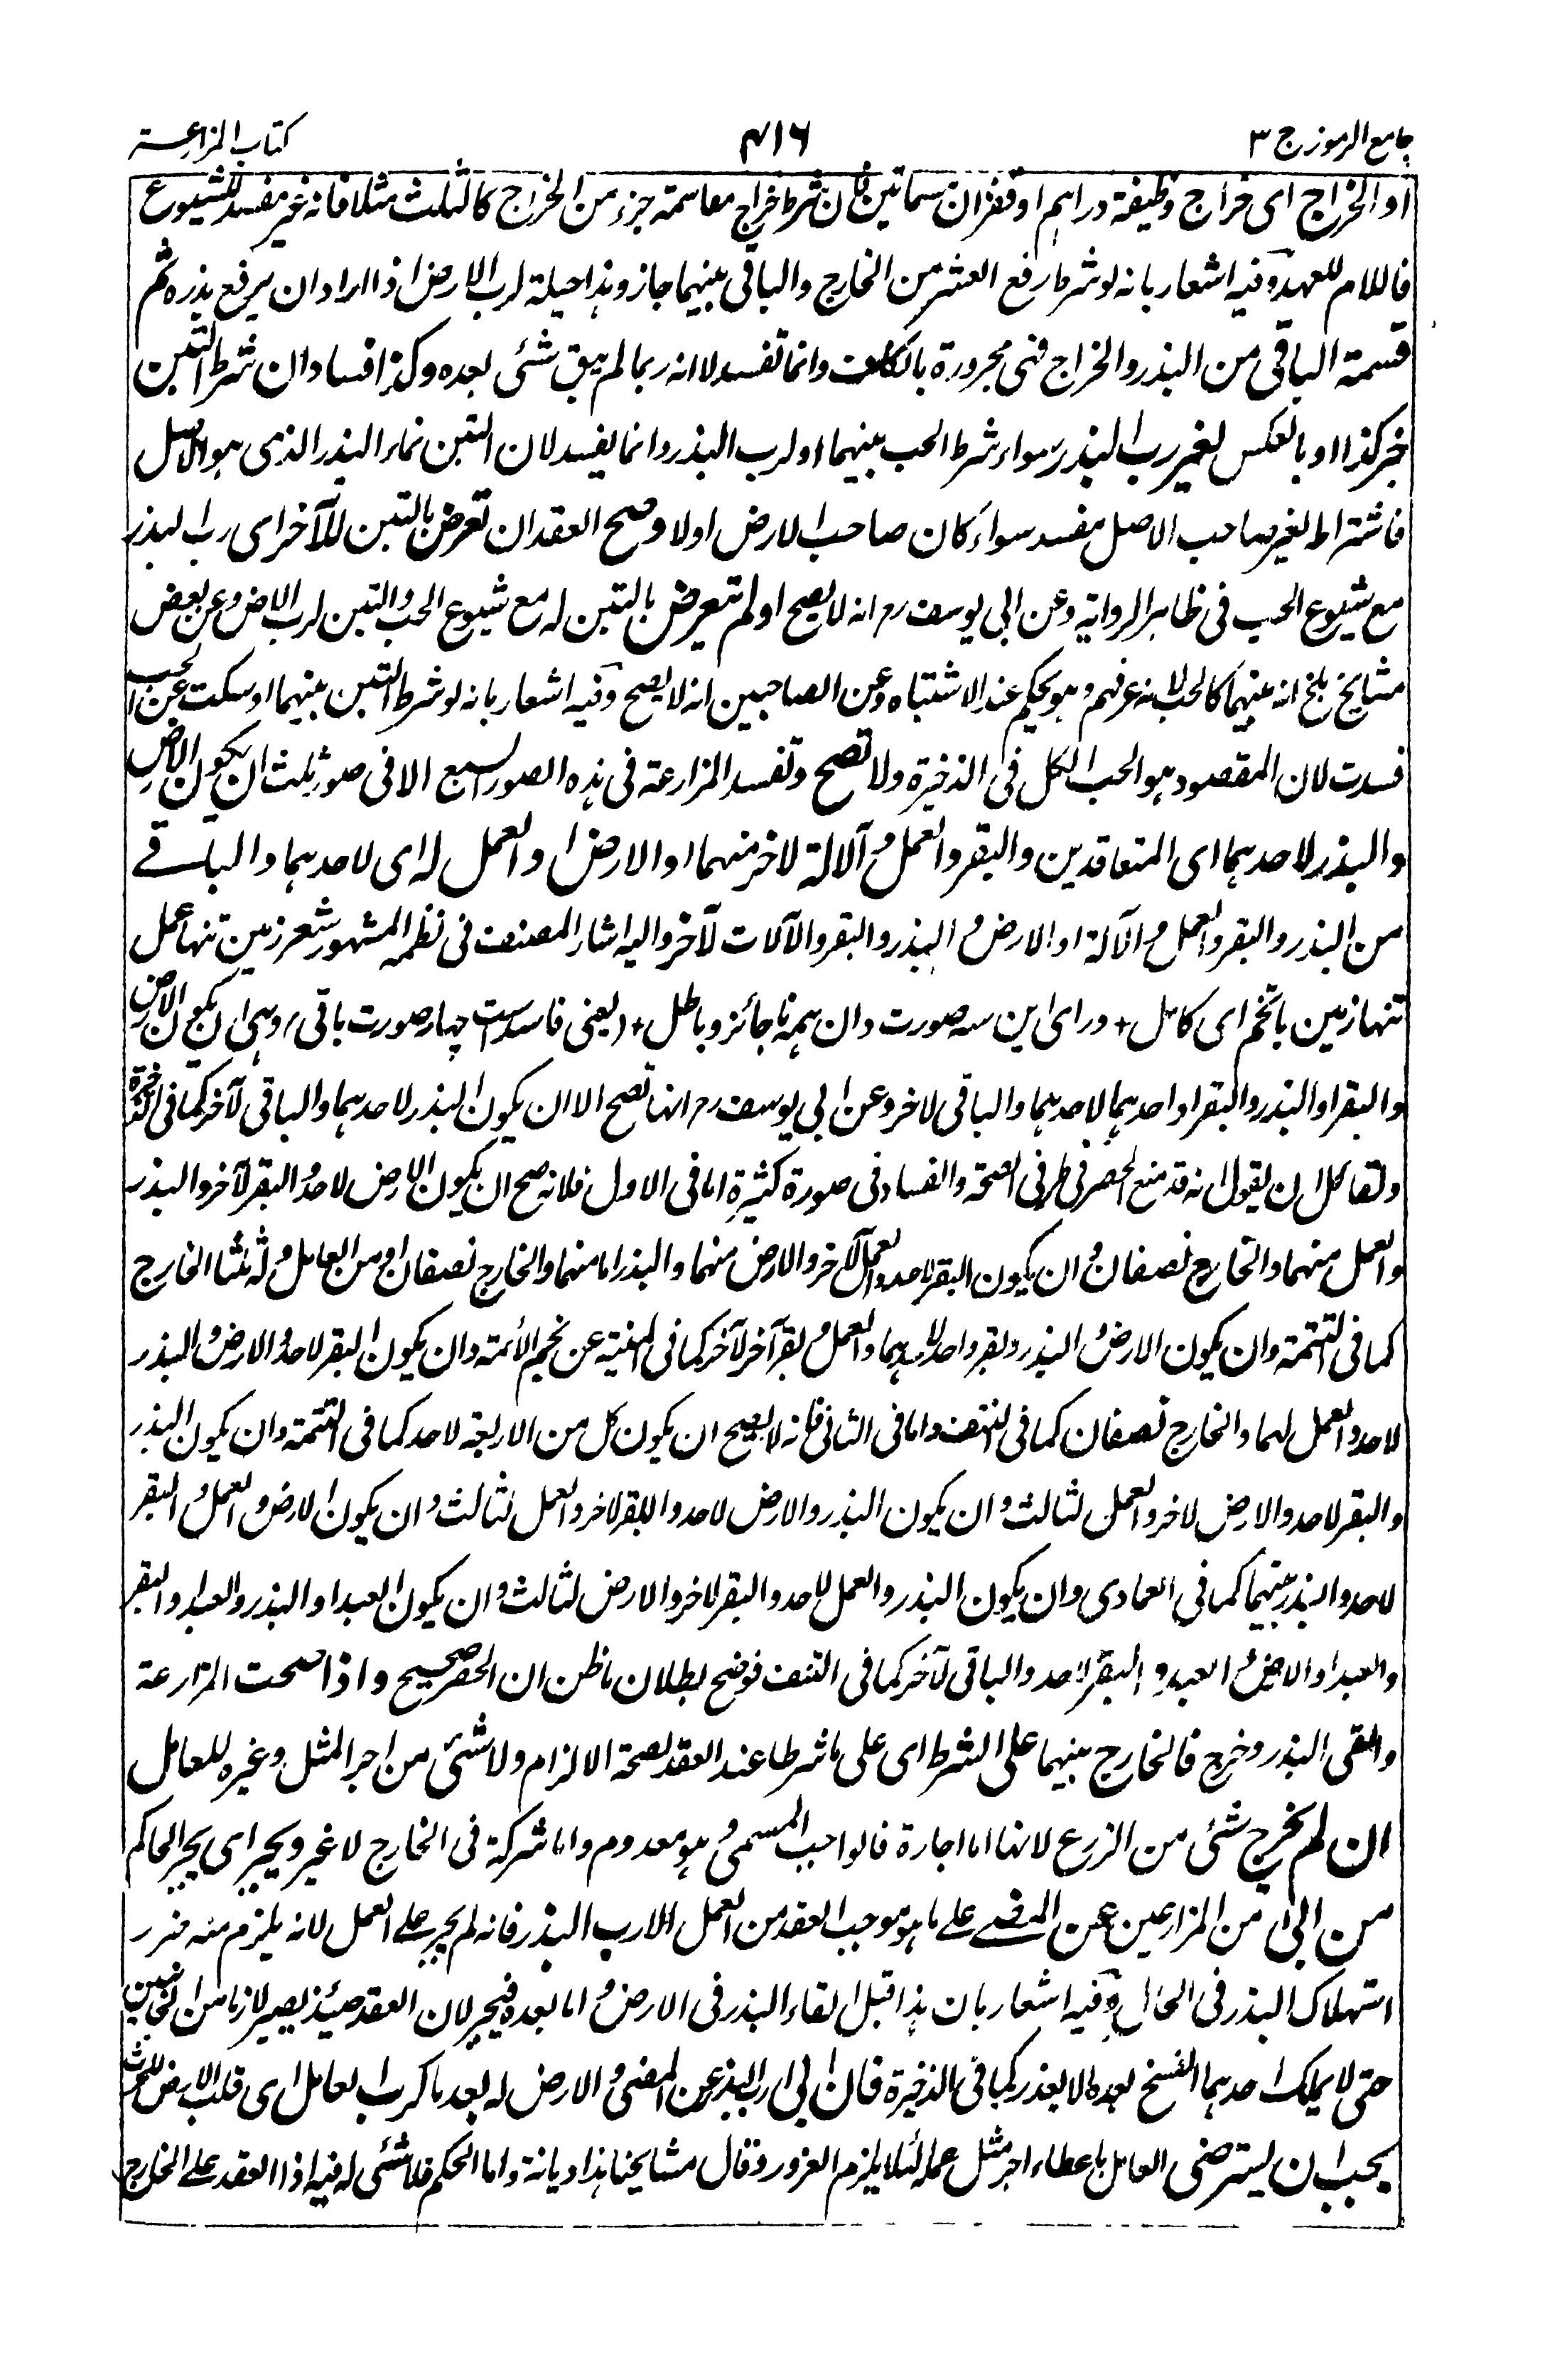 جامع الرموز ج ۳
۴۱۶
كتاب المزارعة
او الخراج اى خراج وظيفة دراهم او قفزان مسماتين فان شرط خراج مقاسمة جزء من الخراج كالثلث مثلا فانه غير مفسد للشيوع
فاللام للعهد وفيه اشعار بانه لو شرط رفع العشر من الخارج والباقى بينهما جاز وهذا حيلة لرب الارض اذا اراد ان يرفع بذره ثم
قسمة الباقى من البذر والخراج فهى مجرورة بالكاف وانما تفسد لا انه ربما لم يبق شئ بعده وكذا فسادان شرط التبن
خبر كذا او بالعكس لغير رب البذر سواء شرط الحب بينهما او لرب البذر وانما يفسد لان التبن نماء البذر الذى هو الاصل
فاشتراط لغير صاحب الاصل مفسد سواء كان صاحب الارض اولا وصح العقد ان تعرض بالتبن للآخر اى رب البذر
مع شيوع الحب فى ظاهر الرواية وعن ابى يوسف رح انه لا يصح او لم يتعرض بالتبن له مع شيوع الحب والتبن لرب الارض وعن بعض
مشايخ بلخ انه بينهما كالحب لانه عرفهم وهو يحكم عند الاشتباه وعن الصاحبين انه لا يصح وفيه اشعار بانه لو شرط التبن بينهما او سكت عن الحب
فسدت لان المقصود هو الحب الكل فى الذخيرة ولا تصح وتفسد المزارعة فى هذه الصور السبع الا فى صور ثلث ان يكون الارض
والبذر لاحدهما اى المتعاقدين والبقر والعمل و آلالة لاخر منهما او الارض او العمل له اى لاحدهما والباقے
من البذر والبقر والعمل و الآلة او الارض و البذر والبقر والآلات لآخر واليه اشار المصنف فى نظمه المشهور شعر زمين تنها عمل
تنها زمين با تخم اى كامل + وراى اين سه صورت دان همه نا جائز و باطل + (يعنى فاسد است چهار صورت باقى) وهى ان يكون الارض
والبقر او البذر والبقر او احدهما لاحدهما والباقى لاخر وعن ابى يوسف رح انها تصح الا ان يكون البذر لاحدهما والباقى لآخر كما فى الذخيرة
ولقائل ان يقول انه قد منع الحصر فى طرفى الصحة والفساد فى صورة كثيرة اما فى الاول فلانه صح ان يكون الارض لاحد والبقر لآخر والبذر
والعمل منهما والخارج نصفان و ان يكون البقر لاحد والعمل لآخر والارض منهما والبذر اما منهما والخارج نصفان او من العامل و له ثلثا الخارج
كما فى التتمة وان يكون الارض و البذر وبقر واحد لاحدهما والعمل و بقر آخر لآخر كما فى المنية عن نجم الأئمة وان يكون البقر لاحد و الارض و البذر
لاحد والعمل لهما والخارج نصفان كما فى النتف واما فى الثانى فلانه لا يصح ان يكون كل من الاربعة لاحد كما فى التتمة وان يكون البذر
والبقر لاحد والارض لاخر والعمل لثالث و ان يكون البذر والارض لاحد والبقر لاخر والعمل لثالث و ان يكون الارض و العمل و البقر
لاحد والبذر بينهما كما فى العمادى وان يكون البذر والعمل لاحد والبقر لاخر والارض لثالث و ان يكون العبد او البذر والعبد او البقر
والعبد او الارض و العبد و البقر لاحد والباقى لآخر كما فى النتف فوضح بطلان ما ظن ان الحصر صحيح واذا صحت المزارعة
والقى البذر وخرج فالخارج بينهما على الشرط اى على ما شرطا عند العقد لصحة الالزام ولا شئ من اجر المثل وغيره للعامل
ان لم يخرج شئ من الزرع لانها اما اجارة فالواجب المسمى و هو معدوم واما شركة فى الخارج لا غير ويجبر اى يجبر الحاكم
من ابى من المزارعين عن المضے علے ما هو موجب العقد من العمل الا رب البذر فانه لم يجبر علے العمل لانه يلزم منه ضرر
استهلاك البذر فى الحال وفيه اشعار بان هذا قبل القاء البذر فى الارض و اما بعده فيجبر لان العقد حينئذ يصير لازما من الجانبين
حتى لا يملك احدهما الفسخ بعده الا بعذر كما فى الذخيرة فان ابى رب البذر عن المضى و الارض له بعد ما كرب العامل اى قلب الارض للحرث
يجب ان يسترضى العامل باعطاء اجر مثل عمله لئلا يلزم الغرور وقال مشايخنا هذا ديانة واما الحكم فلا شئ له فيه اذا العقد علے الخارج